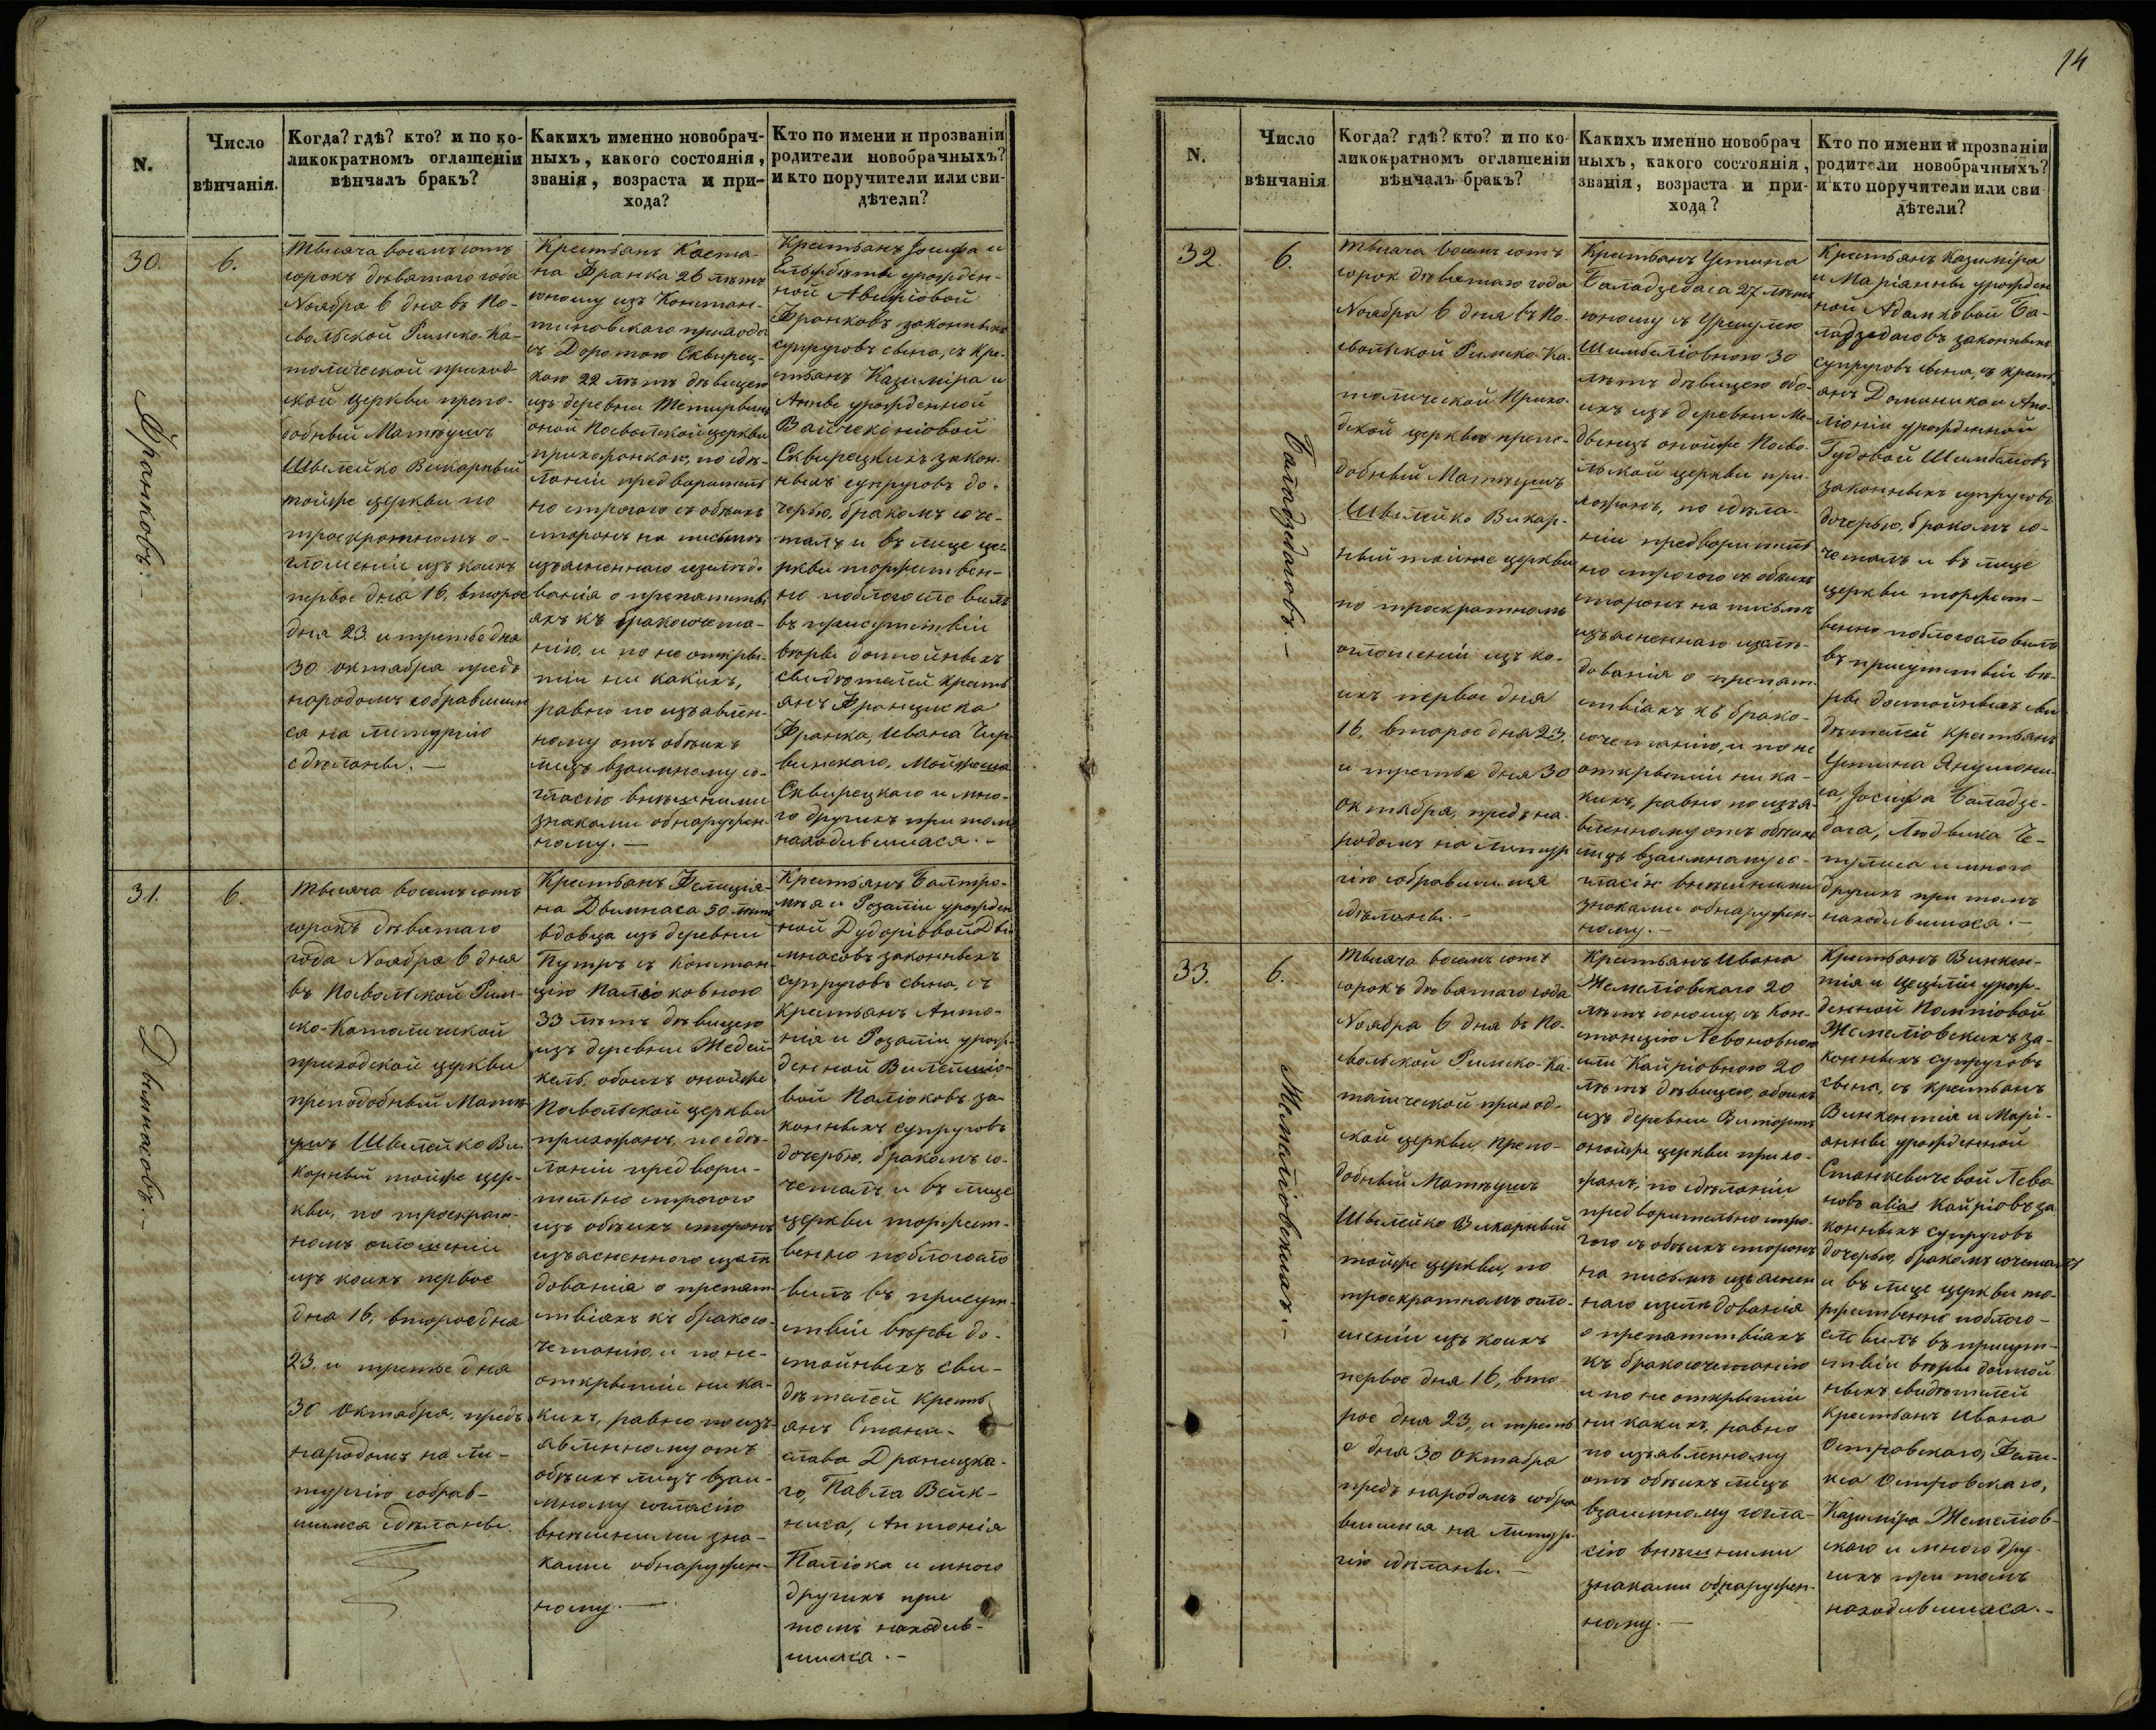 14
N.
Число
вѣнчанія.
Когда? гдѣ? кто? и по ко-
ликократномъ оглашеніи
вѣнчалъ бракъ?
Какихъ именно новобрач-
ныхъ, какого состоянія,
званія, возраста и при-
хода?
Кто по имени и прозваніи
родители новобрачныхъ?
и кто поручители или сви-
дѣтели?
30.
6.
Франковъ.-
Тысяча восемъ сотъ
сорокъ девятаго года
Ноября 6 дня въ По-
вольской Римско-Ка-
толической приход-
ской церкви препо-
добный Матеушъ
Швылейко Викарный
тойже церкви по
троекратномъ о-
глошеніи изъ коихъ
первое дня 16, второе
дня 23. и третье дня
30 октября предъ
народомъ собравшим
ся на литургію
сдѣланы.-
Крестьянъ Коста-
на Франка 26 лѣтъ
юношу изъ Констан-
тиновскаго прихода
съ Доротою Сквирец-
кою 22 лѣтъ дѣвицею
изъ деревни
оной Повольской церкви
прихожанкою, по сдѣ-
ланіи предварительно
но строгого съ обѣихъ
сторонъ на письмѣ
изъясненнаго изслѣдо-
ванія о препятстві
яхъ къ бракосочета-
нію, и по не откры-
тіи ни какихъ,
равно по изъявлен-
ному отъ обѣихъ
лицъ взаимному со-
гласію внѣшними
знаками обнаружен-
ному.-
Крестьянъ Іосифа и
Ельжбѣты урожден-
ной
Франковъ законныхъ
супруговъ сына, съ кре-
стьянъ Казиміра и
Анны урожденной
Вайчеконіовой
Сквирецкихъ закон-
ныхъ супруговъ до-
черью, бракомъ соче-
талъ и въ лице це-
ркви торжествен-
но поблогословилъ
въ присутствіи
вѣры достойныхъ
свидѣтелей кресть
янъ Францишка
Франка, Ивана Чер
винскаго, Мойжеша
Сквирецкаго и мно-
го другихъ при томъ
находившихся.-
31.
6.
Двимнасовъ.-
Тысяча восемъ сотъ
сорокъ девятаго
года Ноября 6 дня
въ Повольской Рим-
ско-Католической
приходской церкви
преподобный Мате
ушъ Швылейко Ви-
карный тойже цер-
кви, по троекрат-
номъ оглошеніи
изъ коихъ первое
дня 16, второе дня
23. и третье дня
30 Октября, предъ
народомъ на ли-
тургію собрав-
шимся сдѣланы.
Крестьянъ Фелиція-
на Двимнаса 50 лѣтъ
вдовца изъ деревни
Путръ съ Констан-
цію Паліоковною
33 лѣтъ дѣвицею
изъ деревни Жедей-
кель, обоихъ онойже
Повольской церкви
прихожанъ, по сдѣ-
ланіи предвори-
тельно строгого
изъ обѣихъ сторонъ
изъясненного изслѣ
дованія о препят-
ствіяхъ къ бракосо-
четанію, и по не-
открытіи ни ка-
кихъ, равно по изъ-
явленному отъ
обѣихъ лицъ взаи-
мному согласію
внѣшними зна-
ками обнаружен-
ному.-
Крестьянъ Балтро-
мѣя и Розаліи урожден
ной Дударіовой Дви-
мнасовъ законныхъ
супруговъ сына, съ
Крестьянъ Анто-
нія и Розаліи урож-
денной
вой Паліоковъ за-
конныхъ супруговъ
дочерью, бракомъ со-
четалъ, и въ лице
церкви торжест-
венно поблогосло
вилъ въ присут-
ствіи вѣры до-
стойныхъ сви-
дѣтелей Кресть
янъ Стани-
слава Драницка-
го, Павла Вейк-
ниса, Антонія
Паліока и много
другихъ при
томъ находив-
шихся.-
N.
Число
вѣнчанія
Когда? гдѣ? кто? и по ко-
ликократномъ оглашеніи
вѣнчалъ бракъ?
Какихъ именно новобрач
ныхъ, какого состоянія,
званія, возраста и при-
хода?
Кто по имени и прозваніи
родители новобрачныхъ?
и кто поручители или сви
дѣтели?
32.
6.
Боладзедаговъ.-
Тысяча восемъ сотъ
сорок девятаго года
Ноября 6 дня въ По-
вольской Римско-Ка-
толической Прихо-
дской церкви препо-
добный Матеушъ
Швылейко Викар-
ный тойже церкви
по троекратномъ
оглошеніи изъ ко-
ихъ первое дня
16, второе дня 23,
и третье дня 30
октября, предъ на-
родомъ на литур
гію собравшимся
сдѣланы.-
Крестьянъ Устина
Баладзедаса 27 лѣтъ
юношу съ Уршулею
Шимбеліовною 30
лѣтъ дѣвицею обо-
ихъ изъ деревни
онойже Пово-
льской церкви при-
хожанъ, по сдѣла-
ніи предворитель
но строгого съ обѣихъ
сторонъ на письмѣ
изъясненнаго изслѣ-
дованія о препят-
ствіяхъ къ брако-
сочетанію, и по не
открытіи ни ка-
кихъ, равно по изъя-
вленному отъ обѣихъ
лицъ взаимному со-
гласію внѣшними
знаками обнаружен-
ному.-
Крестьянъ Казиміра
и Маріанны урожден
ной Адамковой Ба-
ладзедаговъ законныхъ
супруговъ сына, съ крест-
янъ Доминика и Апо-
лоніи урожденной
Гудовой Шимбеліовъ
законныхъ супруговъ
дочерью, бракомъ со-
четалъ и въ лице
церкви торжест-
венно поблогословилъ
въ присутствіи вѣ-
ры достойныхъ сви
дѣтелей крестьянъ
Устина
са, Іосифа Боладзе-
дага, Людвика Че-
пулиса и много
другихъ при томъ
находившихся.-
33.
6.
Жемеліовскихъ.-
Тысяча восемъ сотъ
сорокъ девятаго года
Ноября 6 дня въ По-
вольской Римско-Ка-
толической приход-
ской церкви, препо-
добный Матеушъ
Швылейко Викарный
тойже церкви, по
троекратномъ огло-
шеніи изъ коихъ
первое дня 16, вто
рое дня 23, и треть
е дня 30 Октября
предъ народомъ собра
вшимся на литур-
гію сдѣланы.-
Крестьянъ Ивана
Жемеліовскаго 20
лѣтъ юношу, съ Кон-
станцію Левоновною
или Кайріовною 20
лѣтъ дѣвицею, обоихъ
изъ деревни
онойже церкви прихо-
жанъ, по сдѣланіи
предворительно стро-
гого съ обѣихъ сторонъ
на письмѣ изъяснен
наго изслѣдованія
о препятствіяхъ
къ бракосочетанію
и по не открытіи
ни какихъ, равно
по изъявленному
отъ обѣихъ лицъ
взаимному согла-
сію внѣшними
знаками обнаружен-
ному.-
Крестьянъ Винкен-
тія и Цециліи урож-
денной
Жемеліовскихъ за-
конныхъ супруговъ
сына, съ крестьянъ
Винкентія и Мари-
анны урожденной
Станкевичевой Лево
новъ alias Кайріовъ за
конныхъ супруговъ
дочерью, бракомъ сочеталъ
и въ лице церкви то-
ржественно поблого-
словилъ въ присут-
ствіи вѣры достой
ныхъ свидѣтелей
Крестьянъ Ивана
Островскаго, Фели-
кса Островскаго,
Казиміра Жемеліов-
скаго и много дру-
гихъ при томъ
находившихся.-